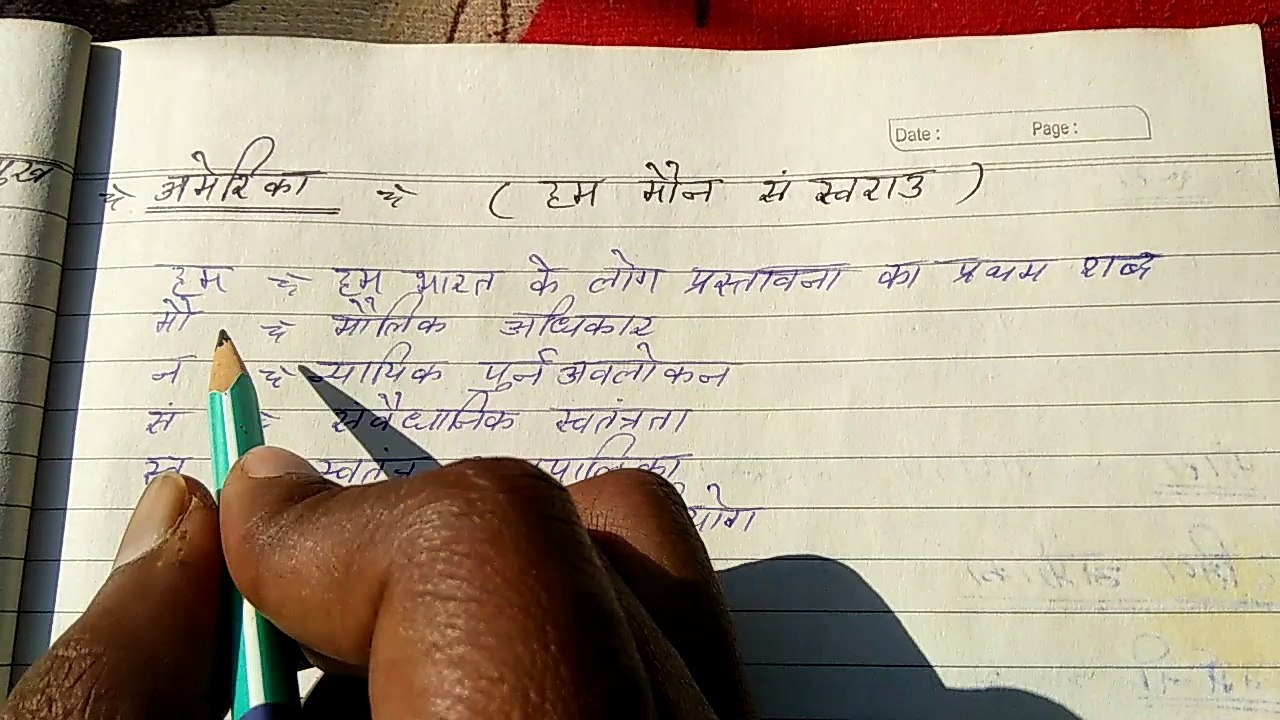 Date : Page :
⇒ अमेरिका ⇒ ( हम मौन सं स्वराउ )
हम ⇒ हम भारत के लोग प्रस्तावना का प्रथम शब्द
मौ ⇒ मौलिक अधिकार
न ⇒ न्यायिक पुर्न अवलोकन
सं ⇒ सवैधानिक स्वतंत्रता
स्व स्वतंत्र पालिका
योग